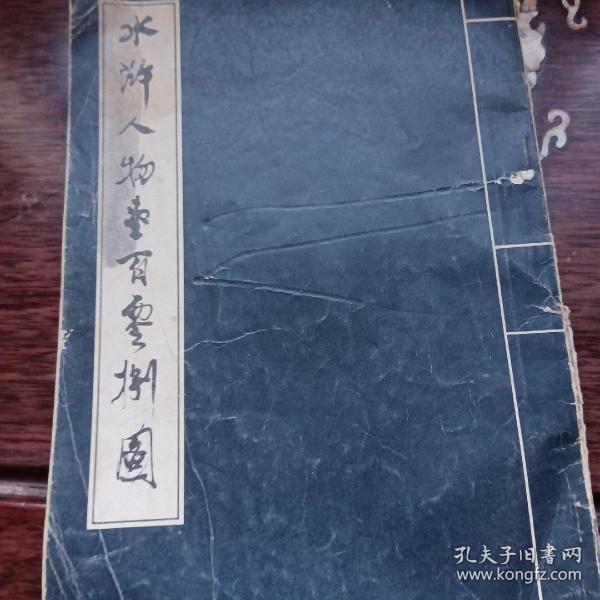 水滸人物壹百零捌圖
孔夫子旧書网
www.kongfz.com